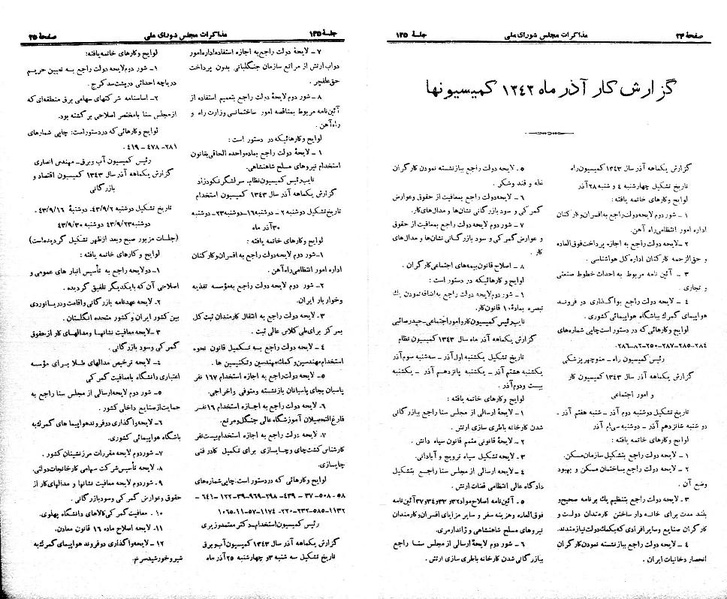 صفحهٔ ۲۴
مذاکرات مجلس شورای ملی
جلسهٔ ۱۳۵
گزارش کار آذر ماه ۱۳۴۳ کمیسیونها
گزارش یکماهه آذر سال ۱۳۴۳ کمیسیون راه
تاریخ تشکیل چهارشنبه ۴ و شنبه ۲۸ آذر
لوایح و کارهای خاتمه یافته :
۱ – شور دوم لایحه دولت راجع به افسران و کارکنان
اداره امور انتظامی راه آهن.
۲ – لایحه دولت راجع به اجازه پرداخت فوق العاده
و حق الزحمه کارکنان اداره کل هواشناسی.
۳ – آئین نامه مربوط به احداث خطوط صنعتی
و تجاری.
۴ – لایحه دولت راجع بواگذاری دو فروند
هواپیمای گمرک بباشگاه هواپیمائی کشوری.
لوایح و کارهائی که در دستور است چاپی شماره‌های
۲۸۴-۲۸۵-۲۸۷-۲۵۰-۸۲-۲۸۶
رئیس کمیسیون راه – منوچهر پزشکی
گزارش یکماهه آذر سال ۱۳۴۳ کمیسیون کار
و امور اجتماعی
تاریخ تشکیل دوشنبه دوم آذر – شنبه هفتم آذر –
دوشنبه شانزدهم آذر – دوشنبه سی‌ام آذر
لوایح و کارهای خاتمه یافته :
۱ – لایحه دولت راجع بتشکیل سازمان مسکن.
۲ – لایحه دولت راجع بساختمان مسکن و بهبود
وضع آن.
۳ – لایحه دولت راجع بتنظیم یک برنامه صحیح و
بلند مدت برای خانه دار ساختن کارمندان دولت و
کارگران صنایع و سایر افرادی که بکمک دولت نیازمندند.
۴ – لایحه دولت راجع ببازنشسته نمودن کارگران
انحصار دخانیات ایران.
۵ – لایحه دولت راجع ببازنشسته نمودن کارگران
قند و شکر.
۶ – لایحه دولت راجع بمعافیت از حقوق و عوارض
گمرکی و سود بازرگانی نشان‌ها و مدال‌های کار.
۷ – شور دوم لایحه دولت راجع بمعافیت از حقوق
و عوارض گمرکی و سود بازرگانی نشان‌ها و مدال‌های
کار.
۸ – اصلاح قانون بیمه‌های اجتماعی کارگران.
لوایح و کارهائیکه در دستور است :
۱ – شور دوم لایحه دولت راجع به اضافه نمودن یک
تبصره بماده ۱ قانون کار.
نایب رئیس کمیسیون کار و امور اجتماعی – حیدر صائبی
گزارش یکماهه آذر ماه سال ۱۳۴۳ کمیسیون نظام
تاریخ تشکیل یکشنبه اول آذر – سه‌شنبه سوم آذر
یکشنبه هشتم آذر – یکشنبه پانزدهم آذر – یکشنبه
بیست و دوم آذر.
لوایح و کارهای خاتمه یافته :
۱ – لایحه ارسالی از مجلس سنا راجع ببازرگانی
شدن کارخانه باطری سازی ارتش.
۲ – لایحه قانونی متمم قانون سپاه دانش.
۳ – لایحه تشکیل سپاه ترویج و آبادانی.
۴ – لایحه ارسالی از مجلس سنا راجع بتشکیل
دادگاه عالی انتظامی قضات ارتش.
۵ – آئین نامه اصلاح مواد ۳۲ و ۳۴ و ۳۷ آئین نامه
فوق العاده و هزینه سفر و سایر مزایای افسران و کارمندان
نیروهای مسلح شاهنشاهی و ژاندارمری.
۶ – شور دوم لایحه ارسالی از مجلس سنا راجع
ببازرگانی شدن کارخانه باطری سازی ارتش.
جلسهٔ ۱۳۵
مذاکرات مجلس شورای ملی
صفحهٔ ۲۵
۷ – لایحه دولت راجع به اجازه استفاده اداره امور
دواب ارتش از مراتع سازمان جنگلبانی بدون پرداخت
حق علفچر.
۸ – شور دوم لایحه دولت راجع بتعمیم استفاده از
آئین نامه مربوط بمناقصه امور ساختمانی وزارت راه و
راه آهن.
لوایح و کارهائیکه در دستور است :
۱ – لایحه دولت راجع بماده واحده الحاقی بقانون
استخدام نیروهای مسلح شاهنشاهی.
نایب رئیس کمیسیون نظام – سرلشگر نکوزاد
گزارش یکماهه آذر سال ۱۳۴۳ کمیسیون استخدام
تاریخ تشکیل دوشنبه ۲ – دوشنبه ۱۶ – دوشنبه ۲۳ – دوشنبه
۳۰ آذر ماه
لوایح و کارهای خاتمه یافته :
۱ – شور دوم لایحه دولت راجع به افسران و کارکنان
اداره امور انتظامی راه آهن.
۲ – شور دوم لایحه دولت راجع به مؤسسه تغذیه
و خواربار ایران.
۳ – لایحه دولت راجع به انتقال کارمندان ثبت کل
بمرکز برای طی کلاس عالی ثبت.
۴ – لایحه دولت راجع به تکمیل قانون نحوه
استخدام مهندسین و کمک مهندسین و تکنیسین ها.
۵ – لایحه دولت راجع به اجازه استخدام ۱۶۷ نفر
پاسبان بجای پاسبانان بازنشسته و متوفی و اخراجی.
۶ – لایحه دولت راجع به اجازه استخدام نفر
فارغ التحصیلان آموزشگاه عالی جنگل و مرتع.
۷ – لایحه دولت راجع به اجازه استخدام بیست نفر
کارشناس کشت چای و چایسازی برای تکمیل کادر فنی
چایسازی.
لوایح و کارهائی که در دستور است چاپی شماره‌های
۵۸-۵۰۸-۳۷-۴۳۹-۲۹۸-۹۶۹-۱۲۲-۶۴۱-
۱۱۳۲-۵۵-۵۸۰-۲۳۲-۲۲۰-۱۱۷۴-۵۷-۱۰۶۵۰۱۱
رئیس کمیسیون استخدام – دکتر معتمد وزیری
گزارش یکماهه آذر سال ۱۳۴۳ کمیسیون آب و برق
تاریخ تشکیل سه شنبه ۳ و چهارشنبه ۲۵ آذر ماه
لوایح و کارهای خاتمه یافته:
۱ – شور دوم لایحه دولت راجع به تعیین حریم
دریاچه احداثی در پشت سد کرج.
۲ – اساسنامه شرکتهای سهامی برق منطقه‌ای که
از مجلس سنا با مختصر اصلاحی برگشته بود.
لوایح و کارهائی که در دستور است: چاپی شماره‌های
۲۸۱ – ۴۷۸ – ۴۱۹.
رئیس کمیسیون آب و برق – مهندس انصاری
گزارش یکماهه آذر سال ۱۳۴۳ کمیسیون اقتصاد و
بازرگانی
تاریخ تشکیل دوشنبه ۴۳/۹/۲ دوشنبه ۴۳/۹/۱۶
دوشنبه ۴۳/۹/۲۳ دوشنبه ۴۳/۹/۳۰
(جلسات مزبور صبح و بعد از ظهر تشکیل گردیده است)
لوایح و کارهای خاتمه یافته :
۱ – دو لایحه راجع به تأسیس انبار های عمومی و
اصلاحی آن که بایکدیگر تلفیق گردیده.
۲ – لایحه عهدنامه بازرگانی واقامت و دریانوردی
بین کشور ایران و کشور متحده انگلستان.
۳ – لایحه معافیت نشانها و مدالهای کار از حقوق
گمرکی و سود بازرگانی.
۴ – لایحه ترخیص مدالهای طلا برای مؤسسه
اعتباری دانشگاه با معافیت گمرکی.
۵ – شور دوم لایحه ارسالی از مجلس سنا راجع به
حمایت از صنایع داخلی کشور.
۶ – لایحه واگذاری دو فروند هواپیما های گمرک به
باشگاه هواپیمائی کشوری.
۷ – شور دوم لایحه مقررات مرز نشینان کشور.
۸ – لایحه تأسیس شرکت سهامی کارخانجات دولتی.
۹ – شور دوم لایحه بهره معافیت نشانها و مدالهای کار از
حقوق و عوارض گمرکی و سود بازرگانی.
۱۰ – معافیت گمرکی کالاهای دانشگاه پهلوی.
۱۱ – لایحه اصلاح ماده ۲۶ قانون معادن.
۱۲ – لایحه واگذاری دو فروند هواپیمای گمرک به
شیر و خورشید سرخ.